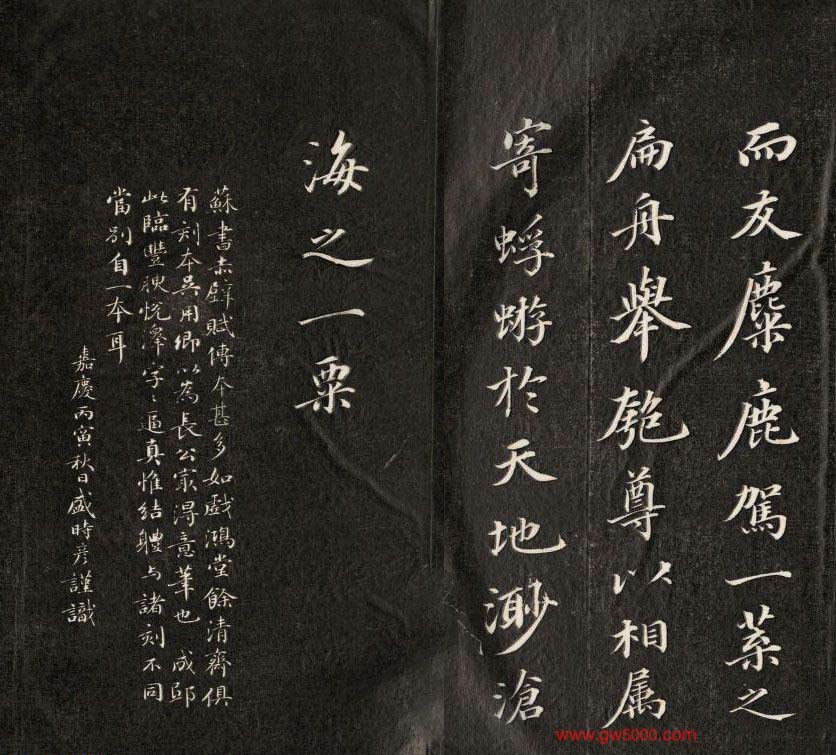 而友麋鹿駕一葉之
扁舟舉匏尊以相属
寄蜉蝣於天地渺滄
海之一粟
蘇書赤壁賦傳本甚多如戲鴻堂餘清齋俱
有刻本吳用卿以為長公最得意筆也成邸
此臨豐腴悅澤字〻逼真惟結體与諸刻不同
當別自一本耳
嘉慶丙寅秋日盛時彦謹識
www.gw5000.com